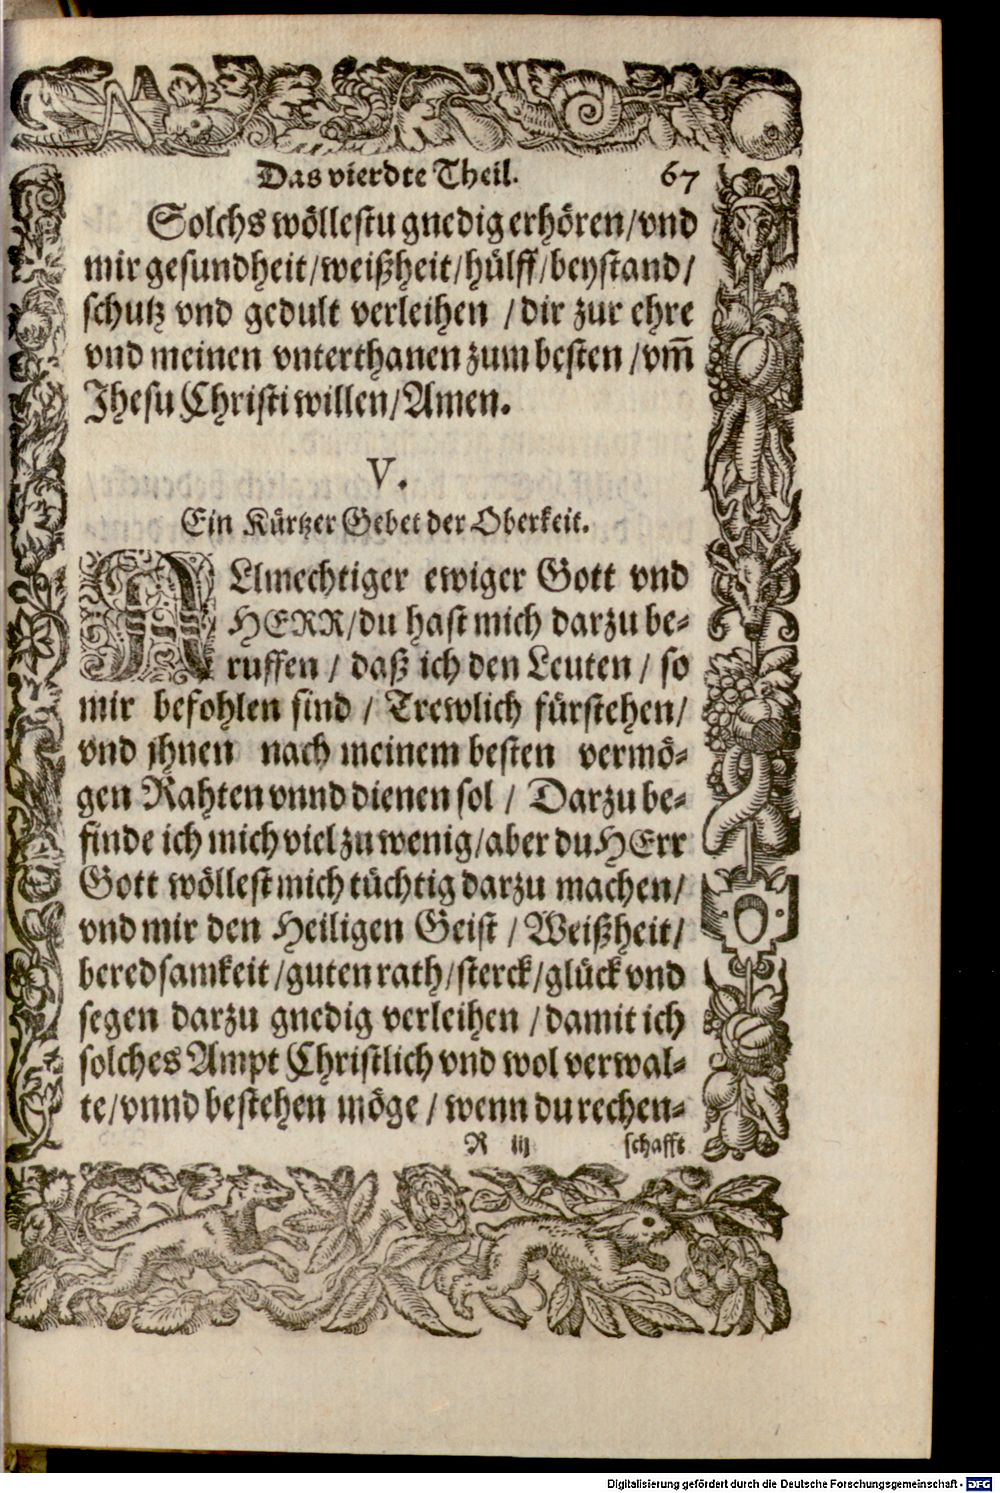 Das vierdte Theil. 67
Solchs wöllestu gnedig erhören/vnd
mir gesundheit/weißheit/hülff/beystand/
schutz vnd gedult verleihen /dir zur ehre
vnd meinen vnterthanen zum besten /vm̃
Jhesu Christi willen/Amen.
V.
Ein Kürtzer Gebet der Oberkeit.
ALlmechtiger ewiger Gott vnd
HERR/du hast mich darzu be-
ruffen / daß ich den Leuten / so
mir befohlen sind / Trewlich fürstehen/
vnd jhnen nach meinem besten vermö-
gen Rahten vnnd dienen sol / Darzu be-
finde ich mich viel zu wenig/aber du HErr
Gott wöllest mich tüchtig darzu machen/
vnd mir den Heiligen Geist / Weißheit/
beredsamkeit /guten rath/sterck/glück vnd
segen darzu gnedig verleihen /damit ich
solches Ampt Christlich vnd wol verwal-
te/vnnd bestehen möge / wenn du rechen-
R iij schafft
Digitalisierung gefördert durch die Deutsche Forschungsgemeinschaft - DFG